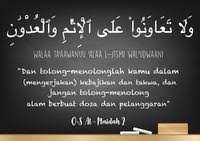 وَلَا تَعَاوَنُوا۟ عَلَى ٱلْإِثْمِ وَٱلْعُدْوَٰنِ
WALAA TAYAAWANUU YALAA L-ITSMI WALYUDWAANI
"Dan tolong-menolonglah kamu dalam
(mengerjakan) kebajikan dan takwa, dan
jangan tolong-menolong
alam berbuat dosa dan pelanggaran"
Q.S Al - Maidah 2